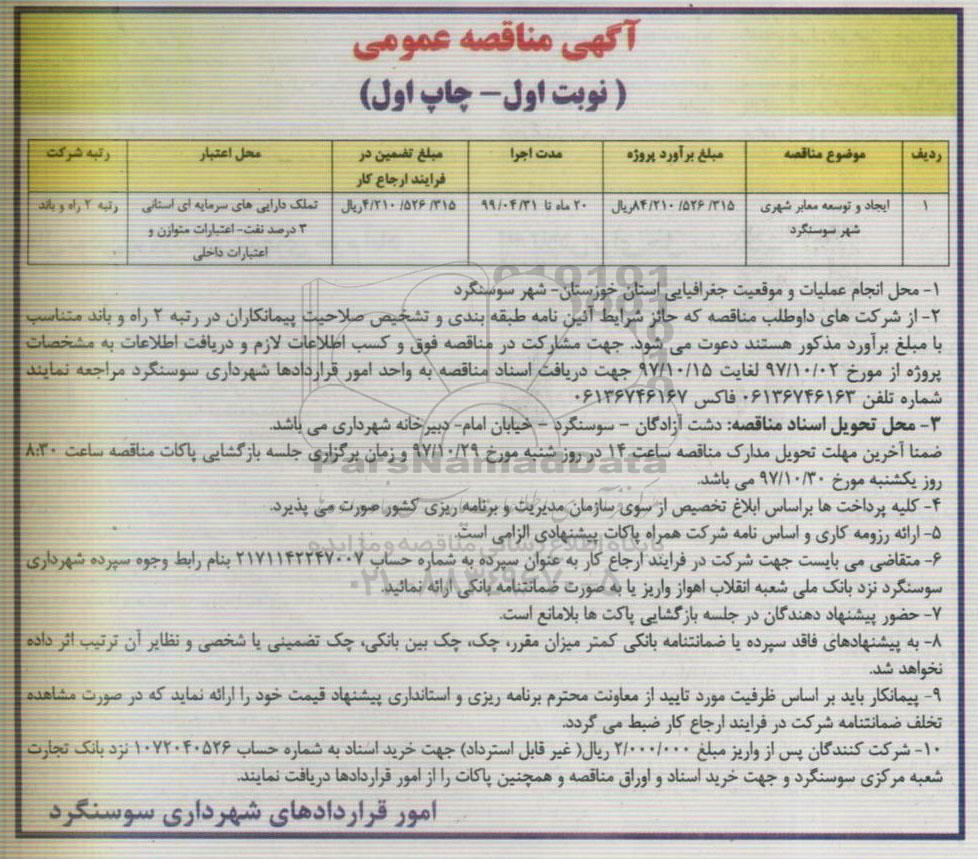 آگهی مناقصه عمومی
( نوبت اول - چاپ اول)
ردیف موضوع مناقصه مبلغ برآورد پروژه مدت اجرا مبلغ تضمین در فرایند ارجاع کار محل اعتبار رتبه شرکت
۱ ایجاد و توسعه معابر شهری شهر سوسنگرد ۸۴/۲۱۰/ ۵۲۶/ ۳۱۵ریال ۲۰ ماه تا ۹۹/۰۴/۳۱ ۴/۲۱۰/ ۵۲۶/ ۳۱۵ریال تملک دارایی های سرمایه ای استانی ۳ درصد نفت- اعتبارات متوازن و اعتبارات داخلی رتبه ۲ راه و باند
۱- محل انجام عملیات و موقعیت جغرافیایی استان خوزستان- شهر سوسنگرد
۲- از شرکت های داوطلب مناقصه که حائز شرایط آئین نامه طبقه بندی و تشخیص صلاحیت پیمانکاران در رتبه ۲ راه و باند متناسب
با مبلغ برآورد مذکور هستند دعوت می شود. جهت مشارکت در مناقصه فوق و کسب اطلاعات لازم و دریافت اطلاعات به مشخصات
پروژه از مورخ ۹۷/۱۰/۰۲ لغایت ۹۷/۱۰/۱۵ جهت دریافت اسناد مناقصه به واحد امور قراردادها شهرداری سوسنگرد مراجعه نمایند
شماره تلفن ۰۶۱۳۶۷۴۶۱۶۳ فاکس ۰۶۱۳۶۷۴۶۱۶۷
۳- محل تحویل اسناد مناقصه: دشت آزادگان - سوسنگرد - خیابان امام- دبیرخانه شهرداری می باشد.
ضمنا آخرین مهلت تحویل مدارک مناقصه ساعت ۱۴ در روز شنبه مورخ ۹۷/۱۰/۲۹ و زمان برگزاری جلسه بازگشایی پاکات مناقصه ساعت ۸:۳۰
روز یکشنبه مورخ ۹۷/۱۰/۳۰ می باشد.
۴- کلیه پرداخت ها براساس ابلاغ تخصیص از سوی سازمان مدیریت و برنامه ریزی کشور صورت می پذیرد.
۵- ارائه رزومه کاری و اساس نامه شرکت همراه پاکات پیشنهادی الزامی است
۶- متقاضی می بایست جهت شرکت در فرایند ارجاع کار به عنوان سپرده به شماره حساب ۲۱۷۱۱۴۲۲۴۷۰۰۷ بنام رابط وجوه سپرده شهرداری
سوسنگرد نزد بانک ملی شعبه انقلاب اهواز واریز یا به صورت ضمانتنامه بانکی ارائه نمائید.
۷- حضور پیشنهاد دهندگان در جلسه بازگشایی پاکت ها بلامانع است.
۸- به پیشنهادهای فاقد سپرده یا ضمانتنامه بانکی کمتر میزان مقرر، چک، چک بین بانکی، چک تضمینی یا شخصی و نظایر آن ترتیب اثر داده
نخواهد شد.
۹- پیمانکار باید بر اساس ظرفیت مورد تایید از معاونت محترم برنامه ریزی و استانداری پیشنهاد قیمت خود را ارائه نماید که در صورت مشاهده
تخلف ضمانتنامه شرکت در فرایند ارجاع کار ضبط می گردد.
۱۰- شرکت کنندگان پس از واریز مبلغ ۲/۰۰۰/۰۰۰ ریال( غیر قابل استرداد) جهت خرید اسناد به شماره حساب ۱۰۷۲۰۴۰۵۲۶ نزد بانک تجارت
شعبه مرکزی سوسنگرد و جهت خرید اسناد و اوراق مناقصه و همچنین پاکات را از امور قراردادها دریافت نمایند.
امور قراردادهای شهرداری سوسنگرد
ParsNamadData
پایگاه اطلاع رسانی مناقصه و مزایده